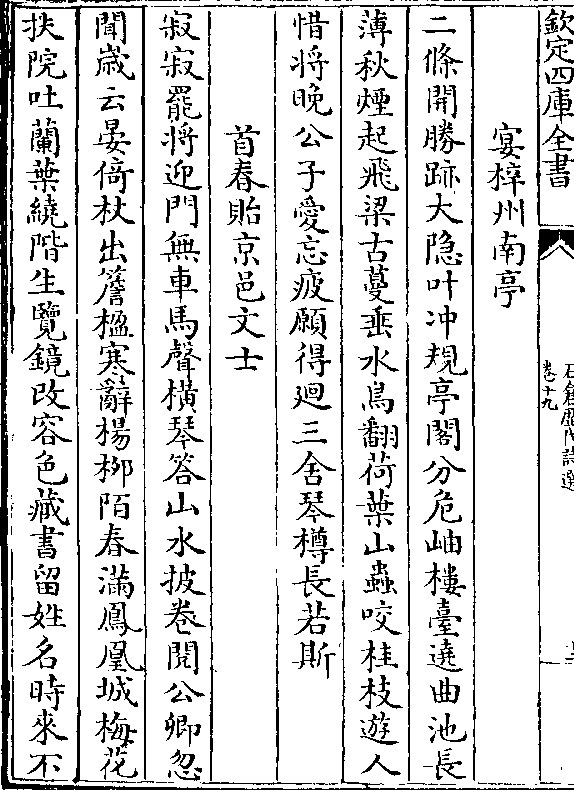 欽定四庫全書
卷十九
宴梓州南亭
二條開勝跡大隐叶冲規亭閣分危岫樓臺遶曲池長
薄秋煙起飛梁古蔓垂水鳥翻荷葉山蟲咬桂枝遊人
惜將晚公子愛忘疲願得迴三舍琴樽長若斯
首春貽京邑文士
寂寂罷將迎門無車馬聲横琴答山水披卷閱公卿忽
聞歳云晏倚杖出簷楹寒辭楊柳陌春滿鳳凰城梅花
扶院吐蘭葉繞階生覽鏡改容色藏書留姓名時來不